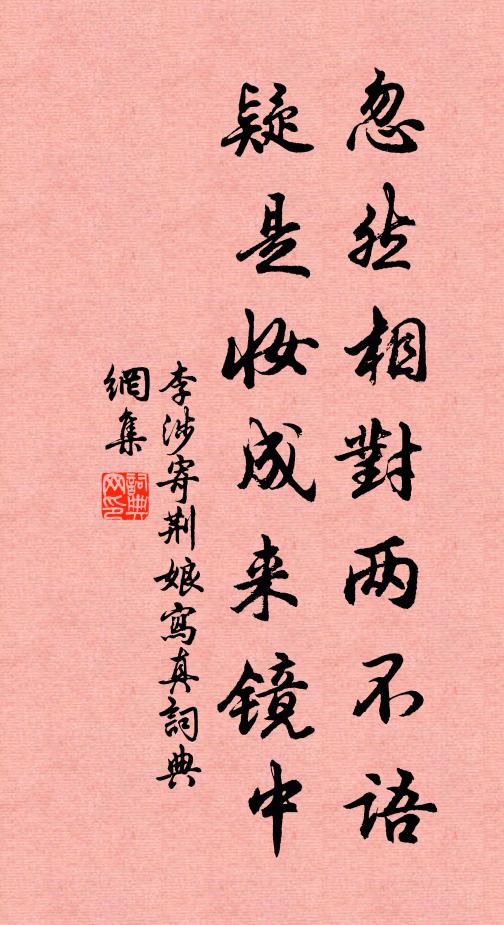 忽然相對两不语
疑是妆成来镜中
李涉寄荆娘寫真詞典
網集
詞典
网印